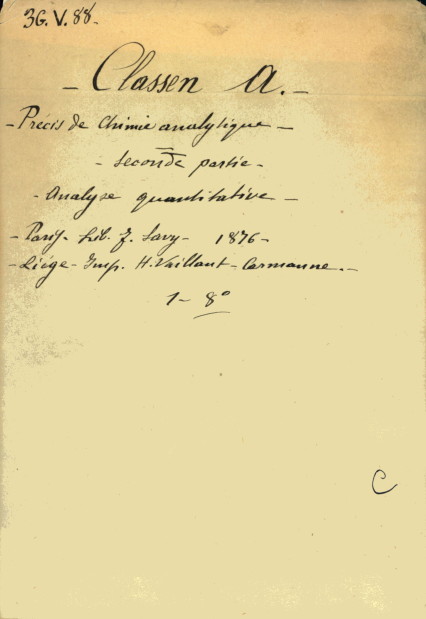 36.V.88-
- Classen A. -
- Précis de Chimie analytique -
- seconde partie -
- Analyse quantitative -
- Paris - Lib. F. Savy - 1876 -
- Liège - Imp. H. Vaillant - Carmanne. -
1 - 8°
C